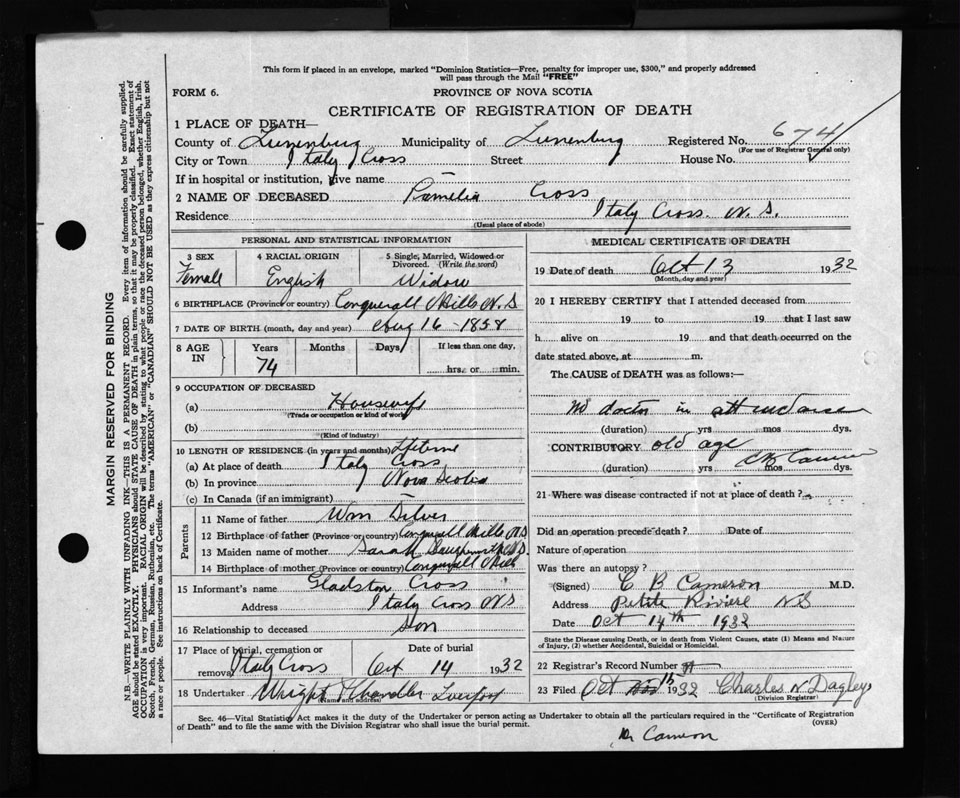 This form if placed in an envelope, marked "Dominion Statistics—Free, penalty for improper use, $300," and properly addressed
will pass through the Mail "FREE"
FORM 6.
PROVINCE OF NOVA SCOTIA
CERTIFICATE OF REGISTRATION OF DEATH
1 PLACE OF DEATH—
County of Lunenburg Municipality of Lunenburg Registered No. 674
(For use of Registrar General only)
City or Town Italy Cross Street House No.
If in hospital or institution, give name
2 NAME OF DECEASED Pamelia Cross
Residence Italy Cross. N. S.
(Usual place of abode)
PERSONAL AND STATISTICAL INFORMATION
3 SEX 4 RACIAL ORIGIN 5 Single, Married, Widowed or
Divorced. (Write the word)
Female English Widow
6 BIRTHPLACE (Province or country) Conquerall Mills N.S
7 DATE OF BIRTH (month, day and year) Aug 16 - 1858
8 AGE IN Years Months Days If less than one day,
74 hrs. or min.
9 OCCUPATION OF DECEASED
(a) Housewife
(Trade or occupation or kind of work)
(b)
(Kind of industry)
10 LENGTH OF RESIDENCE (in years and months) Lifetime
(a) At place of death Italy Cross
(b) In province Nova Scotia
(c) In Canada (if an immigrant)
Parents
11 Name of father Wm
12 Birthplace of father (Province or country) Conquerall Mills N.S
13 Maiden name of mother Sarah
14 Birthplace of mother (Province or country) Conquerall Mills
15 Informant's name Gladston Cross
Address Italy Cross NS
16 Relationship to deceased Son
17 Place of burial, cremation or Date of burial
removal Italy Cross Oct 14 1932
18 Undertaker Wright Chandler Liverpool
(Name and address)
MEDICAL CERTIFICATE OF DEATH
19 Date of death Oct 13 1932
(Month, day and year)
20 I HEREBY CERTIFY that I attended deceased from
19 to 19 that I last saw
h alive on 19 and that death occurred on the
date stated above, at m.
The CAUSE of DEATH was as follows:—
No doctor in attendance
(duration) yrs mos dys.
CONTRIBUTORY old age
C B Cameron
(duration) yrs mos dys.
21 Where was disease contracted if not at place of death?
Did an operation precede death? Date of
Nature of operation
Was there an autopsy?
(Signed) C B Cameron M.D.
Address Petite Riviere NS
Date Oct 14th 1932
State the Disease causing Death, or in death from Violent Causes, state (1) Means and Nature
of Injury, (2) whether Accidental, Suicidal or Homicidal.
22 Registrar's Record Number
23 Filed Oct 1932 Charles N Dagley
(Division Registrar)
Sec. 46—Vital Statistics Act makes it the duty of the Undertaker or person acting as Undertaker to obtain all the particulars required in the "Certificate of Registration
of Death" and to file the same with the Division Registrar who shall issue the burial permit.
(OVER)
Dr Cameron
MARGIN RESERVED FOR BINDING
N.B.—WRITE PLAINLY WITH UNFADING INK—THIS IS A PERMANENT RECORD. Every item of information should be carefully supplied.
AGE should be stated EXACTLY. PHYSICIANS should STATE CAUSE OF DEATH in plain terms, so that it may be properly classified. Exact statement of
OCCUPATION is very important. RACIAL ORIGIN will be described by stating to what people or race the deceased person belonged, whether English, Irish,
Scotch, French, German, Russian, Ruthenian, etc. The terms "AMERICAN" or "CANADIAN" SHOULD NOT BE USED as they express citizenship but not
a race or people. See instructions on back of Certificate.